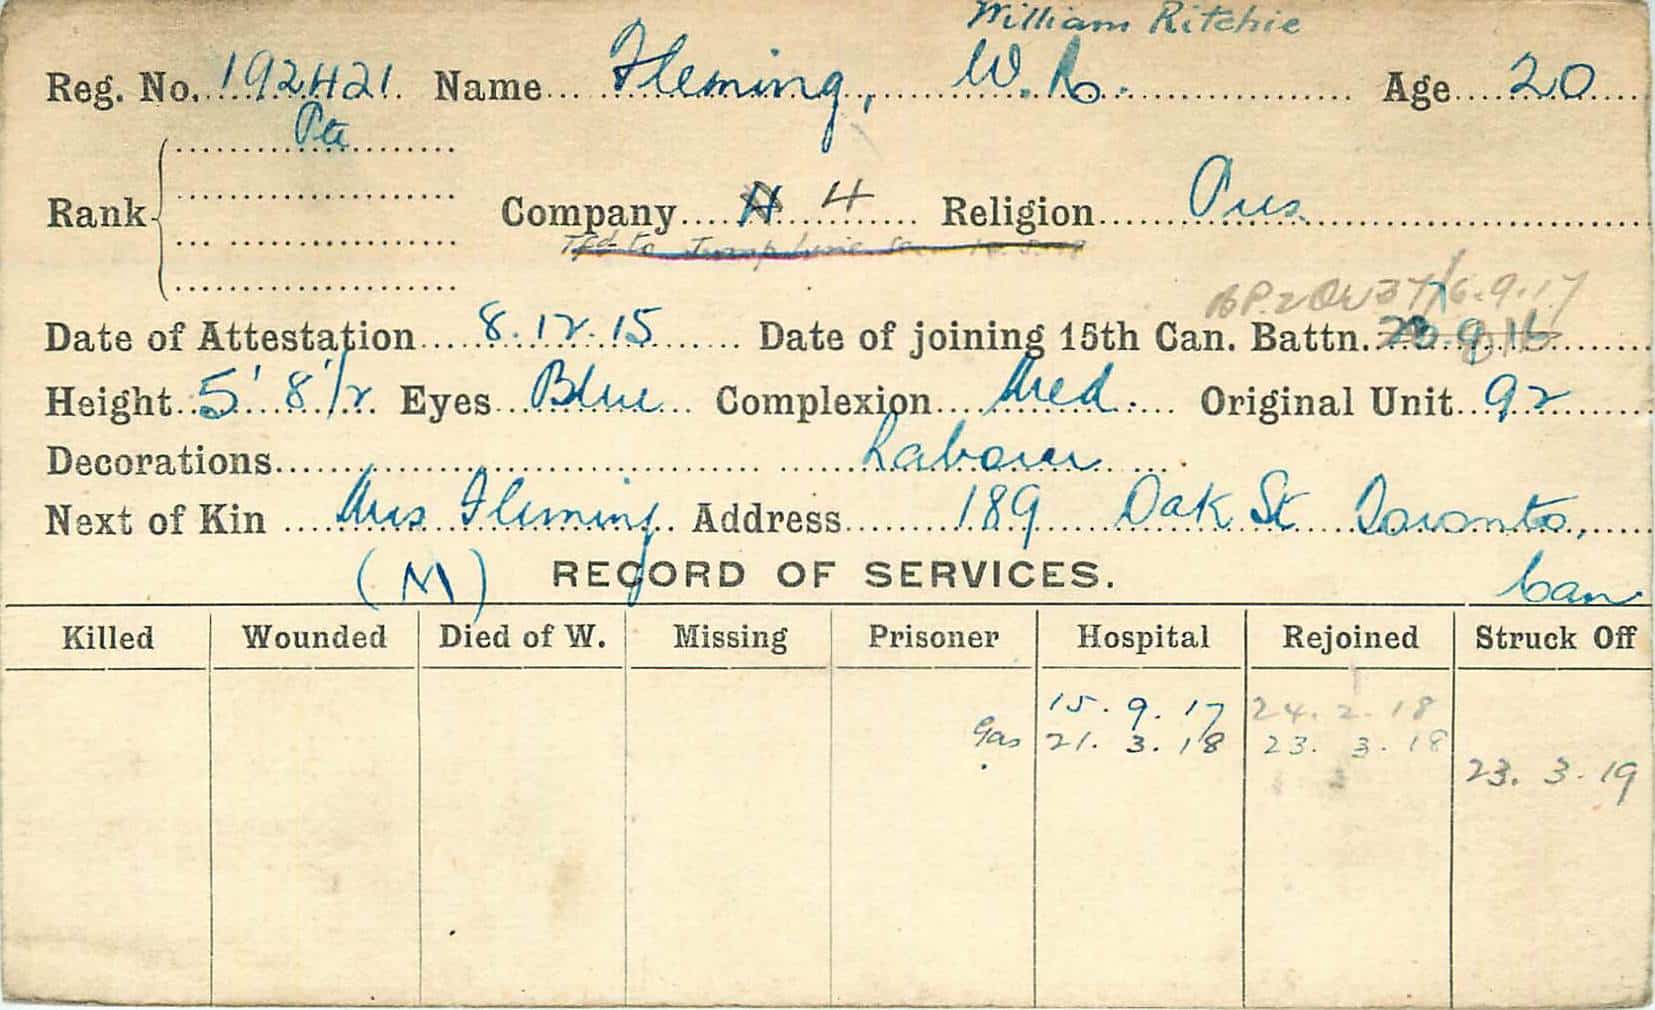 William Ritchie
Reg. No. 192421 Name Fleming, W. R. Age 20
Pte
Rank Company 4 Religion Pres.
Tfd to
6.9.17
Date of Attestation 8.12.15 Date of joining 15th Can. Battn. 28.9.16
Height 5' 8 1/2 Eyes Blue Complexion Med. Original Unit 92
Decorations Labourer
Next of Kin Mrs Fleming Address 189 Oak St Toronto,
(M) RECORD OF SERVICES. Can
Killed Wounded Died of W. Missing Prisoner Hospital Rejoined Struck Off
15.9.17 24.2.18
Gas 21.3.18 23.3.18
23.3.19